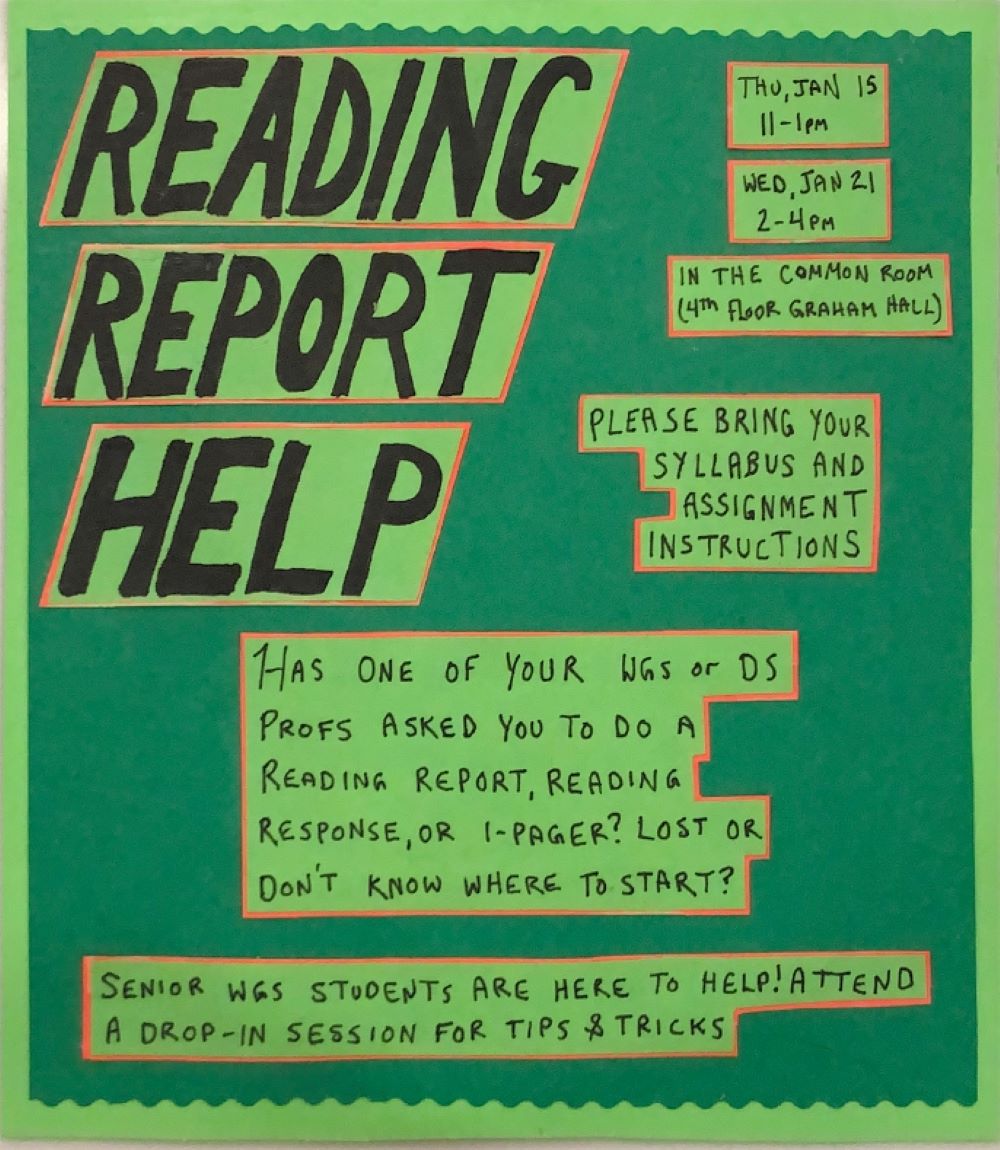 READING
REPORT
HELP
THU, JAN 15
11-1PM
WED, JAN 21
2-4PM
IN THE COMMON ROOM
(4th FLOOR GRAHAM HALL)
PLEASE BRING YOUR
SYLLABUS AND
ASSIGNMENT
INSTRUCTIONS
HAS ONE OF YOUR WGS or DS
PROFS ASKED YOU TO DO A
READING REPORT, READING
RESPONSE, OR 1-PAGER? LOST OR
DON'T KNOW WHERE TO START?
SENIOR WGS STUDENTS ARE HERE TO HELP! ATTEND
A DROP-IN SESSION FOR TIPS & TRICKS